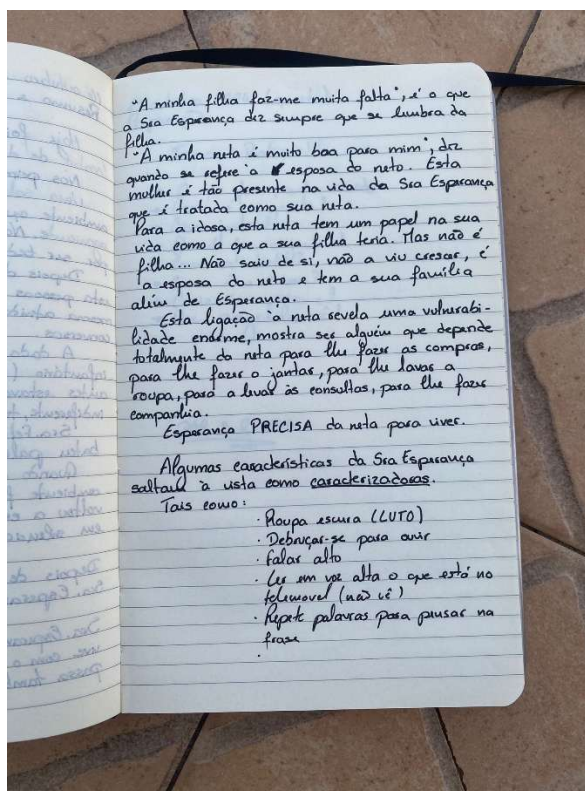 "A minha filha faz-me muita falta", é o que
a Sra Esperança diz sempre que se lembra da
filha.
"A minha neta é muito boa para mim", diz
quando se refere à esposa do neto. Esta
mulher é tão presente na vida da Sra Esperança
que é tratada como sua neta.
Para a idosa, esta neta tem um papel na sua
vida como a que a sua filha teria. Mas não é
filha... Não saiu de si, não a viu crescer, é
a esposa do neto e tem a sua família
além de Esperança.
Esta ligação à neta revela uma vulnerabi-
lidade enorme, mostra ser alguém que depende
totalmente da neta para lhe fazer as compras,
para lhe fazer o jantar, para lhe lavar a
roupa, para a levar às consultas, para lhe fazer
companhia.
Esperança PRECISA da neta para viver.
Algumas características da Sra Esperança
saltam à vista como caracterizadoras.
Tais como:
· Roupa escura (LUTO)
· Debruçar-se para ouvir
· Falar alto
· Ler em voz alta o que está no
telemovel (não vê)
· Repete palavras para pensar na
frase
·